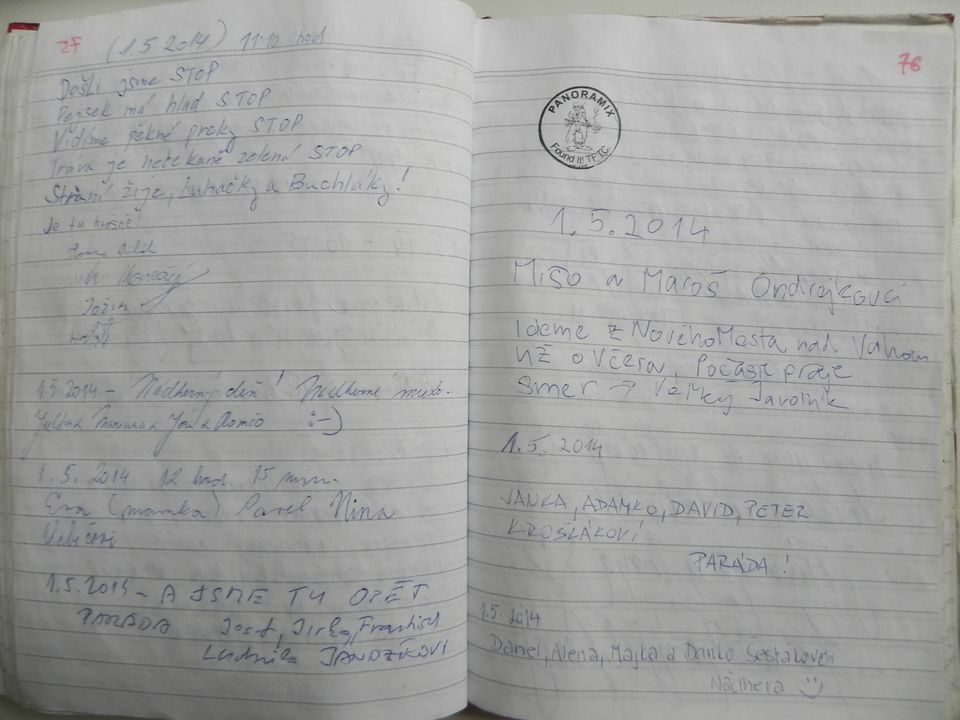 27
(1.5.2014) 11:10 hod
Došli jsme STOP
Pejsek má hlad STOP
Vidíme pěkné prcky STOP
Tráva je nečekaně zelená STOP
Strání žije, Luhačky a Buchláky!
Je tu krásně!
Jožin
1.5.2014 - Nádherný deň! Nádherné miesto.
Julka Mariana Ján a Romčo :-)
1. 5. 2014 12 hod. 15 min.
Eva (mamka) Pavel Nina
1.5.2014 - A JSME TU OPĚT
PARÁDA Josef, Jirka, František
Ludmila JANDZÍKOVI
76
PANORAMIX
Found It! TFTC.
1.5.2014
Mišo a Maroš Ondrejkovci
Ideme z Nového Mesta nad Váhom
už o včera, Počasie praje
Smer → Veľký Javorník
1.5.2014
JANKA, ADAMKO, DAVID, PETER
KROŠLÁKOVÍ
PARÁDA!
1.5.2014
Daniel, Alena, Majka a Danko Šestákovci
Nádhera